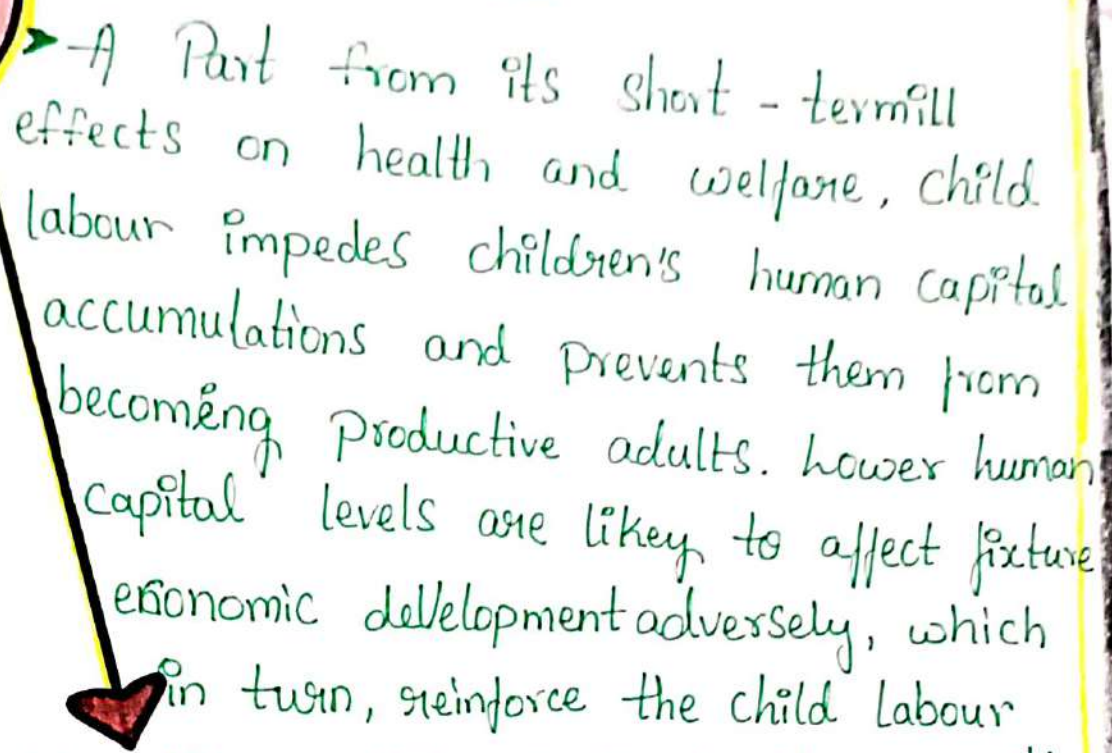 A Part from its short - termill
effects on health and welfare, child
labour impedes children's human capital
accumulations and prevents them from
becoming productive adults. Lower human
capital levels are likey to affect fixture
economic development adversely, which
in turn, reinforce the child labour